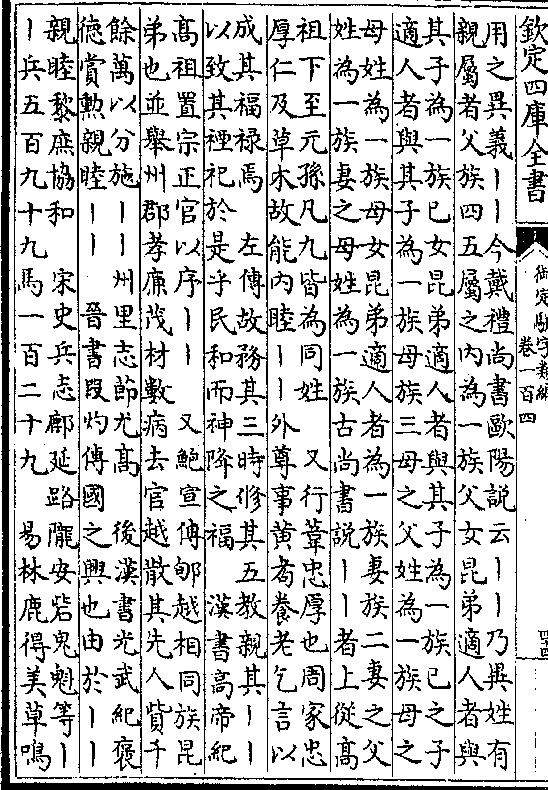 欽定四庫全書
御定駢字類編
卷一百四
用之異義｜｜今戴禮尚書歐陽説云｜｜乃異姓有
親屬者父族四五屬之内為一族父女昆弟適人者與
其子為一族已女昆弟適人者與其子為一族已之子
適人者與其子為一族母族三母之父姓為一族母之
母姓為一族母女昆弟適人者為一族妻族二妻之父
姓為一族妻之母姓為一族古尚書説｜｜者上從髙
祖下至元孫凡九皆為同姓　又行葦忠厚也周家忠
厚仁及草木故能内睦｜｜外尊事黄耇養老乞言以
成其福禄焉　左傳故務其三時修其五教親其｜｜
以致其禋祀於是乎民和而神降之福　漢書高帝紀
髙祖置宗正官以序｜｜　又鮑宣傳郇越相同族昆
弟也並舉州郡孝廉茂材數病去官越散其先人貲千
餘萬以分施｜｜州里志節尤髙　後漢書光武紀褒
徳賞勲親睦｜｜　晉書段灼傳國之興也由於｜｜
親睦黎庶協和　宋史兵志鄜延路隴安砦鬼魁等｜
｜兵五百九十九馬一百二十九　易林鹿得美草鳴